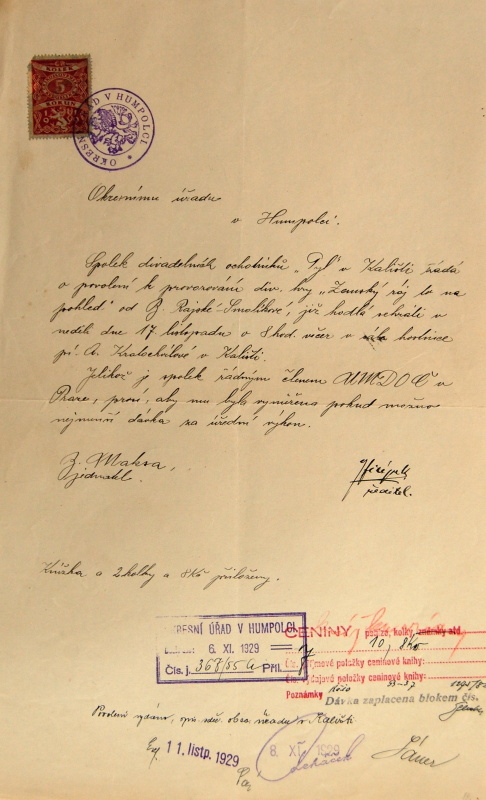 KOLEK
5
KORUN
OKRESNÍ ÚŘAD V HUMPOLCI
Okresnímu úřadu
v Humpolci.
Spolek divadelních ochotníků „Tyl" v Kališti žádá
o povolení k provozování div. hry „Zemský ráj to na
pohled" od Z. Rajské-Smolíkové, již hodlá sehráti v
neděli dne 17 listopadu o 8 hod. večer v sále hostince
pí. A. Kratochvílové v Kališti.
Jelikož je spolek řádným členem ÚMDOČ v
Praze, prosí, aby mu byla vyměřena pokud možno
nejmenší dávka za úřední výkon.
Z. Maksa,
jednatel.
ředitel.
Knížka a 2 kolky a 8 Kč přiloženy.
OKRESNÍ ÚŘAD V HUMPOLCI
6. XI. 1929
Čís. j. Příl.
CENINY peníze, kolky, známky atd.
10, 8 Kč
Čís. příjmové položky ceninové knihy:
Čís. výdajové položky ceninové knihy:
Poznámky
Dávka zaplacena blokem čís.
Povolení vydáno, obec. úřadu v Kališti
11. listp. 1929
8. XI. 1929